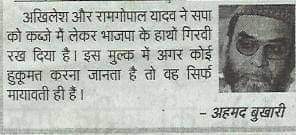 अखिलेश और रामगोपाल यादव ने सपा
को कब्जे में लेकर भाजपा के हाथों गिरवी
रख दिया है। इस मुल्क में अगर कोई
हुकूमत करना जानता है तो वह सिर्फ
मायावती ही हैं।
- अहमद बुखारी